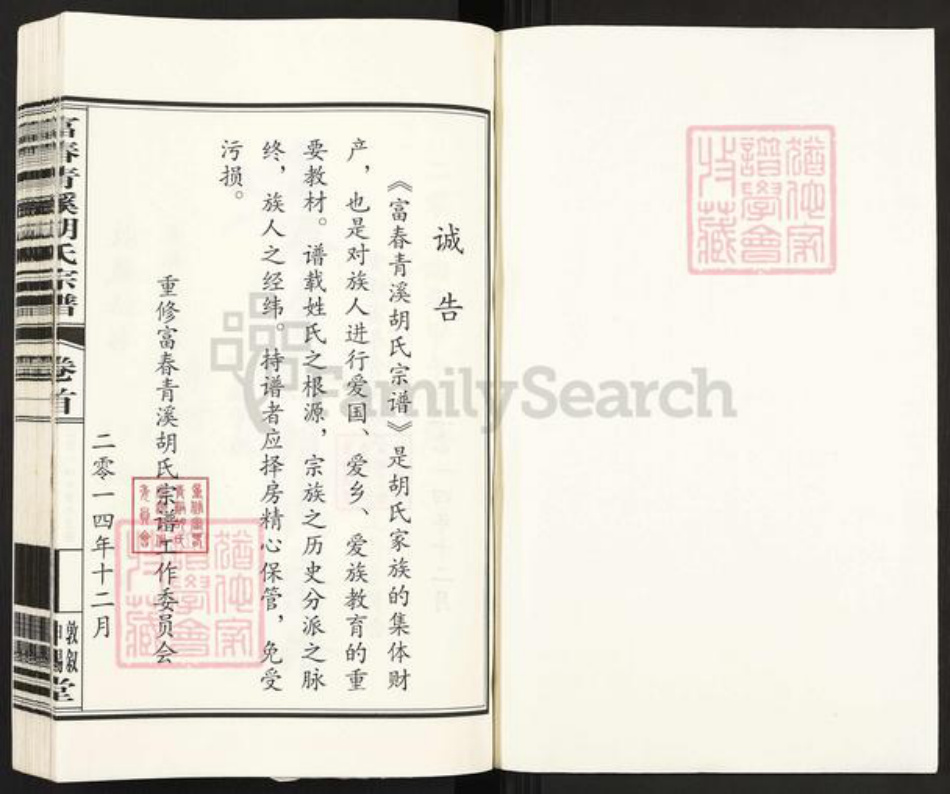 诚告
《富春青溪胡氏宗谱》是胡氏家族的集体财
产，也是对族人进行爱国、爱乡、爱族教育的重
要教材。谱载姓氏之根源，宗族之历史分派之脉
终，族人之经纬。持谱者应择房精心保管，免受
污损。
重修富春青溪胡氏宗谱工作委员会
二零一四年十二月
富春青溪胡氏宗谱
卷首
敦叙
堂
FamilySearch